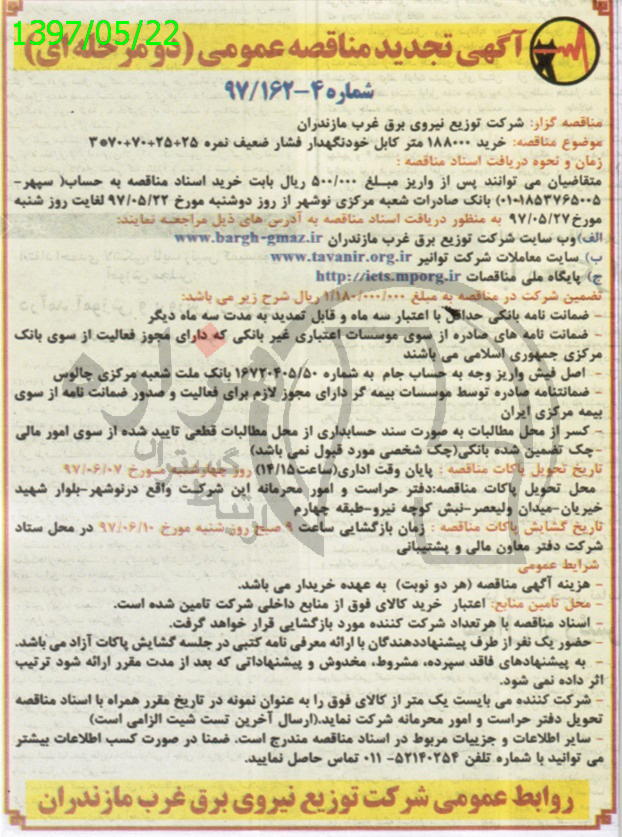 1397/05/22
آگهی تجدید مناقصه عمومی (دو مرحله ای)
شماره ۴-۹۷/۱۶۲
مناقصه گزار: شرکت توزیع نیروی برق غرب مازندران
موضوع مناقصه: خرید ۱۸۸۰۰۰ متر کابل خودنگهدار فشار ضعیف نمره ۲۵+۲۵+۷۰+۷۰*۳
زمان و نحوه دریافت اسناد مناقصه :
متقاضیان می توانند پس از واریز مبـلـغ ۵۰۰/۰۰۰ ریال بابت خرید اسناد مناقصه به حساب( سپهر-
۰۱۰۱۸۵۳۷۶۵۰۰۵) بانک صادرات شعبه مرکزی نوشهر از روز دوشنبه مورخ ۹۷/۰۵/۲۲ لغایت روز شنبه
مورخ ۹۷/۰۵/۲۷ به منظور دریافت اسناد مناقصه به آدرس های ذیل مراجعـه نمایند:
الف)وب سایت شرکت توزیع برق غرب مازندران www.bargh-gmaz.ir
ب). سایت معاملات شرکت توانیر www.tavanir.org.ir
ج) پایگاه ملی مناقصات http://iets.mporg.ir
تضمین شرکت در مناقصه به مبلغ ۱/۱۸۰/۰۰۰/۰۰۰ ریال شرح زیر می باشد:
- ضمانت نامه بانکی حداقل با اعتبار سه ماه و قابل تمدید به مدت سه ماه دیگر
- ضمانت نامه های صادره از سوی موسسات اعتباری غیر بانکی که دارای مجوز فعالیت از سوی بانک
مرکزی جمهوری اسلامی می باشند
- اصل فیش واریز وجه به حساب جام به شماره ۱۶۷۲۰۴۰۵/۵۰ بانک ملت شعبه مرکزی چالوس
- ضمانتنامه صادره توسط موسسات بیمه گر دارای مجوز لازم برای فعالیت و صدور ضمانت نامه از سوی
بیمه مرکزی ایران
- کسر از محل مطالبات به صورت سند حسابداری از محل مطالبات قطعی تایید شده از سوی امور مالی
-چک تضمین شده بانکی(چک شخصی مورد قبول نمی باشد)
تاریخ تحویل پاکات مناقصه : پایان وقت اداری(ساعت ۱۴/۱۵) روز چهارشنبه مـورخ ۹۷/۰۶/۰۷
محل تحویل پاکات مناقصه:دفتر حراست و امور محرمانه این شرکت واقع درنوشهر-بلوار شهید
خیریان-میدان ولیعصر-نبش کوچه نیرو-طبقه چهارم
تاریخ گشایش پاکات مناقصه : زمان بازگشایی ساعت ۹ صبح روز شنبه مورخ ۹۷/۰۶/۱۰ در محل ستاد
شرکت دفتر معاون مالی و پشتیبانی
شرایط عمومی
- هزینه آگهی مناقصه (هر دو نوبت) به عهده خریدار می باشد.
- محل تامین منابع: اعتبار خرید کالای فوق از منابع داخلی شرکت تامین شده است.
- اسناد مناقصه با هرتعداد شرکت کننده مورد بازگشایی قرار خواهد گرفت.
- حضور یک نفر از طرف پیشنهاددهندگان با ارائه معرفی نامه کتبی در جلسه گشایش پاکات آزاد می باشد.
- به پیشنهادهای فاقد سپرده، مشروط، مخدوش و پیشنهاداتی که بعد از مدت مقرر ارائه شود ترتیب
اثر داده نمی شود.
- شرکت کننده می بایست یک متر از کالای فوق را به عنوان نمونه در تاریخ مقرر همراه با اسناد مناقصه
تحویل دفتر حراست و امور محرمانه شرکت نماید.(ارسال آخرین تست شیت الزامی است)
- سایر اطلاعات و جزییات مربوط در اسناد مناقصه مندرج است. ضمنا در صورت کسب اطلاعات بیشتر
می توانید با شماره تلفن ۵۲۱۴۰۲۵۴- ۰۱۱ تماس حاصل نمایید.
روابط عمومی شرکت توزیع نیروی برق غرب مازندران